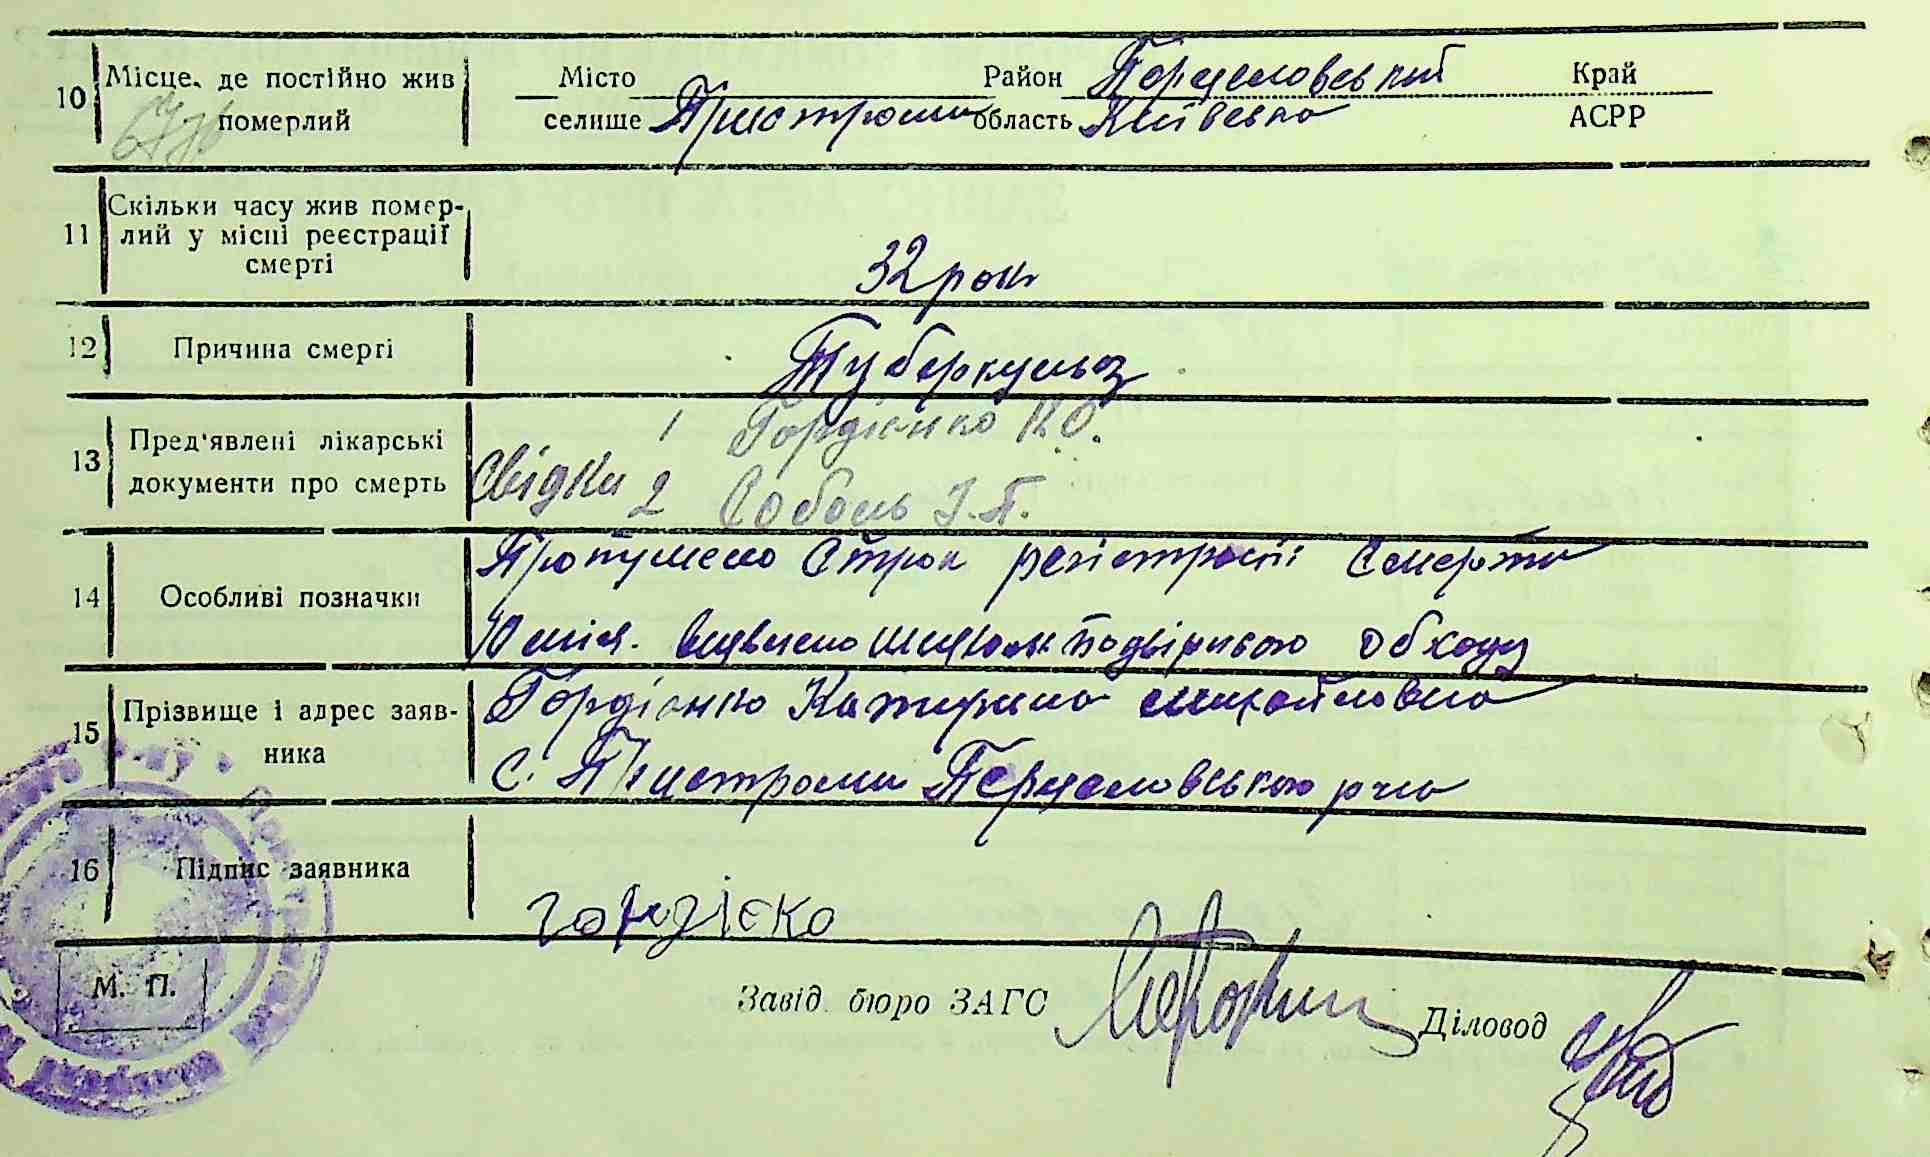 10 Місце, де постійно жив померлий
Місто селище Пристроми
Район Переяславський
область Київська
Край АСРР
11 Скільки часу жив померлий у місці реєстрації смерті
32 роки
12 Причина смерті
Туберкульоз
13 Пред'явлені лікарські документи про смерть
1 Гордієнко К.О.
Свідки 2 Соболь І.П.
14 Особливі позначки
Пропущено строк регістрації смерти
виявлено шляхом подвірного обходу
15 Прізвище і адрес заявника
Гордієнко Катерина Михайловна
с. Пристроми Переяславського р-на
16 Підпис заявника
гордієко
М. П.
Завід. бюро ЗАГС
Діловод